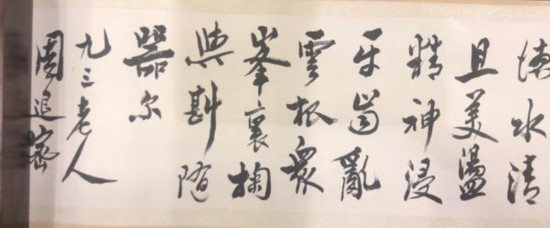 德水清
且美盪
精神浸
牙齒亂
雲根眾
峯裏掬
與斟隨
器尔
九三老人
周退密